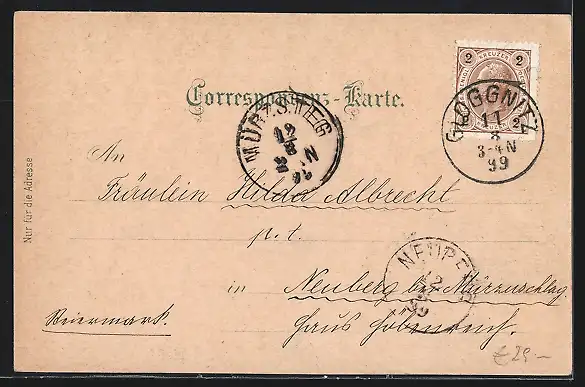 2 KREUZER 2
2 2
Correspondenz-Karte.
GLOGGNITZ
11
8
3-4N
99
MÜRZSTEG
12
8
99
N
An
Fräulein Hilda Albrecht
p. t.
in Neuberg bei Mürzzuschlag
Steiermark.
Haus
NEUBERG
12
8
99
Nur für die Adresse
€ 29.—